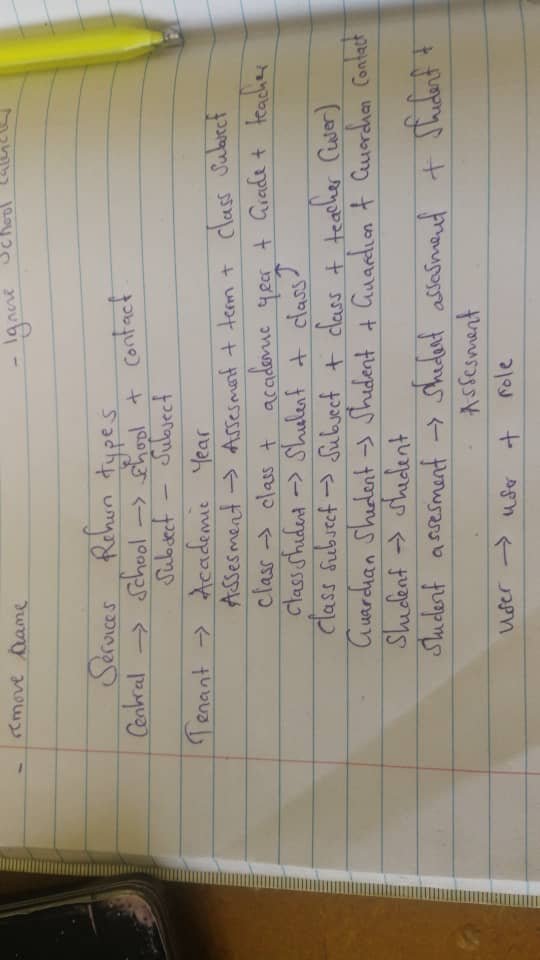 - remove name
- Ignore School Calender
Services Return types
Central → School → School + Contact
Subject - Subject
Tenant → Academic Year
Assesment → Assesment + term + Class Subject
Class → Class + academic year + Grade + teacher
Class Student → Student + Class
Class Subject → Subject + Class + teacher (user)
Guardian Student → Student + Guardian + Guardian Contact
Student → Student
Student assesment → Student assesment + Student +
Assesment
User → user + role